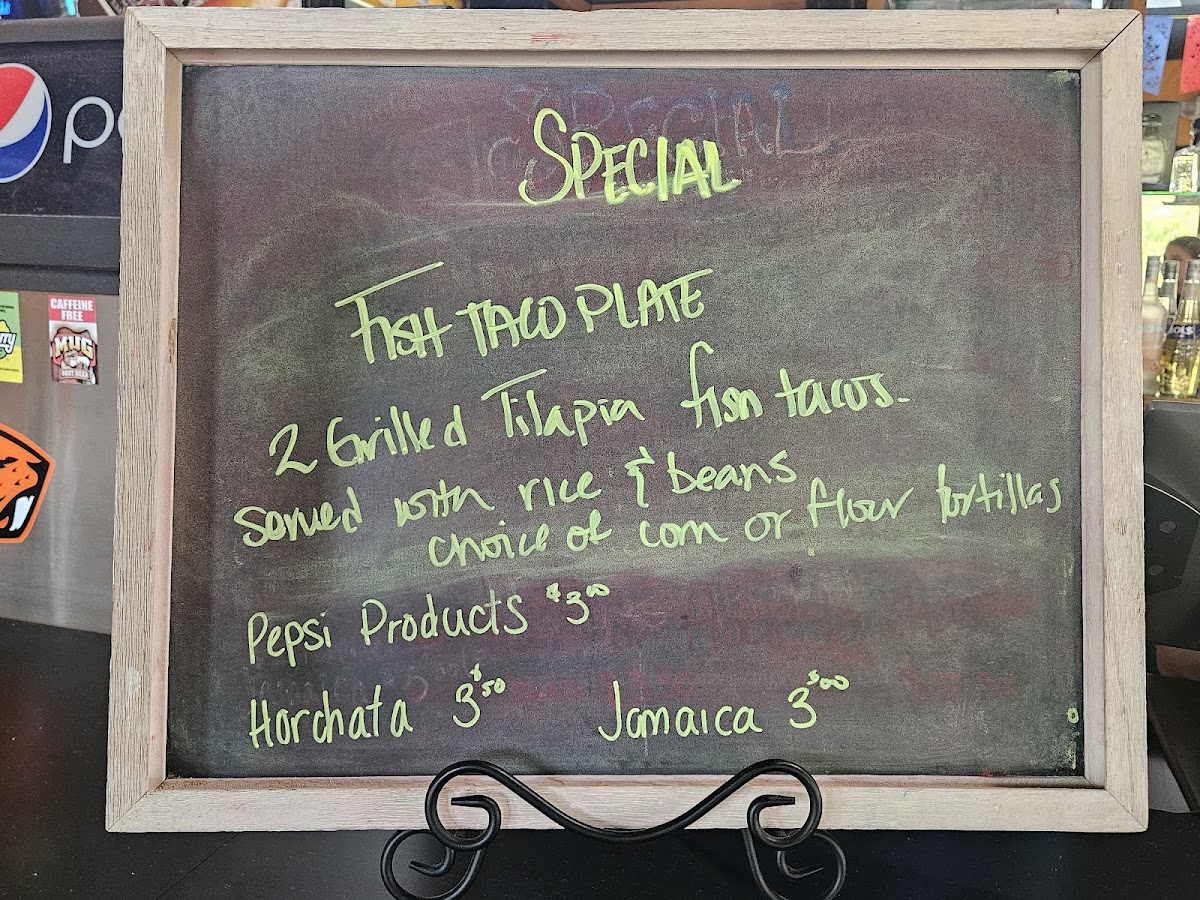 SPECIAL
FISH TACO PLATE
2 Grilled Tilapia fish tacos.
served with rice & beans
choice of corn or flour tortillas
Pepsi Products $3.00
Horchata 3$50
Jamaica 3$00
CAFFEINE
FREE
MUG